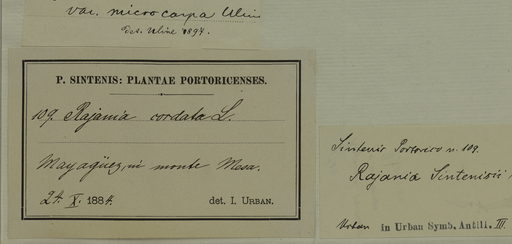 var. microcarpa Uline
Det. Uline 1894.
P. SINTENIS: PLANTAE PORTORICENSES.
109. Rajania cordata L.
Mayagüez, in monte Mesa.
24. X. 1884. det. I. URBAN.
Sintenis Portorico n. 109.
Rajania Sintenisii
Urban in Urban Symb. Antill. III.